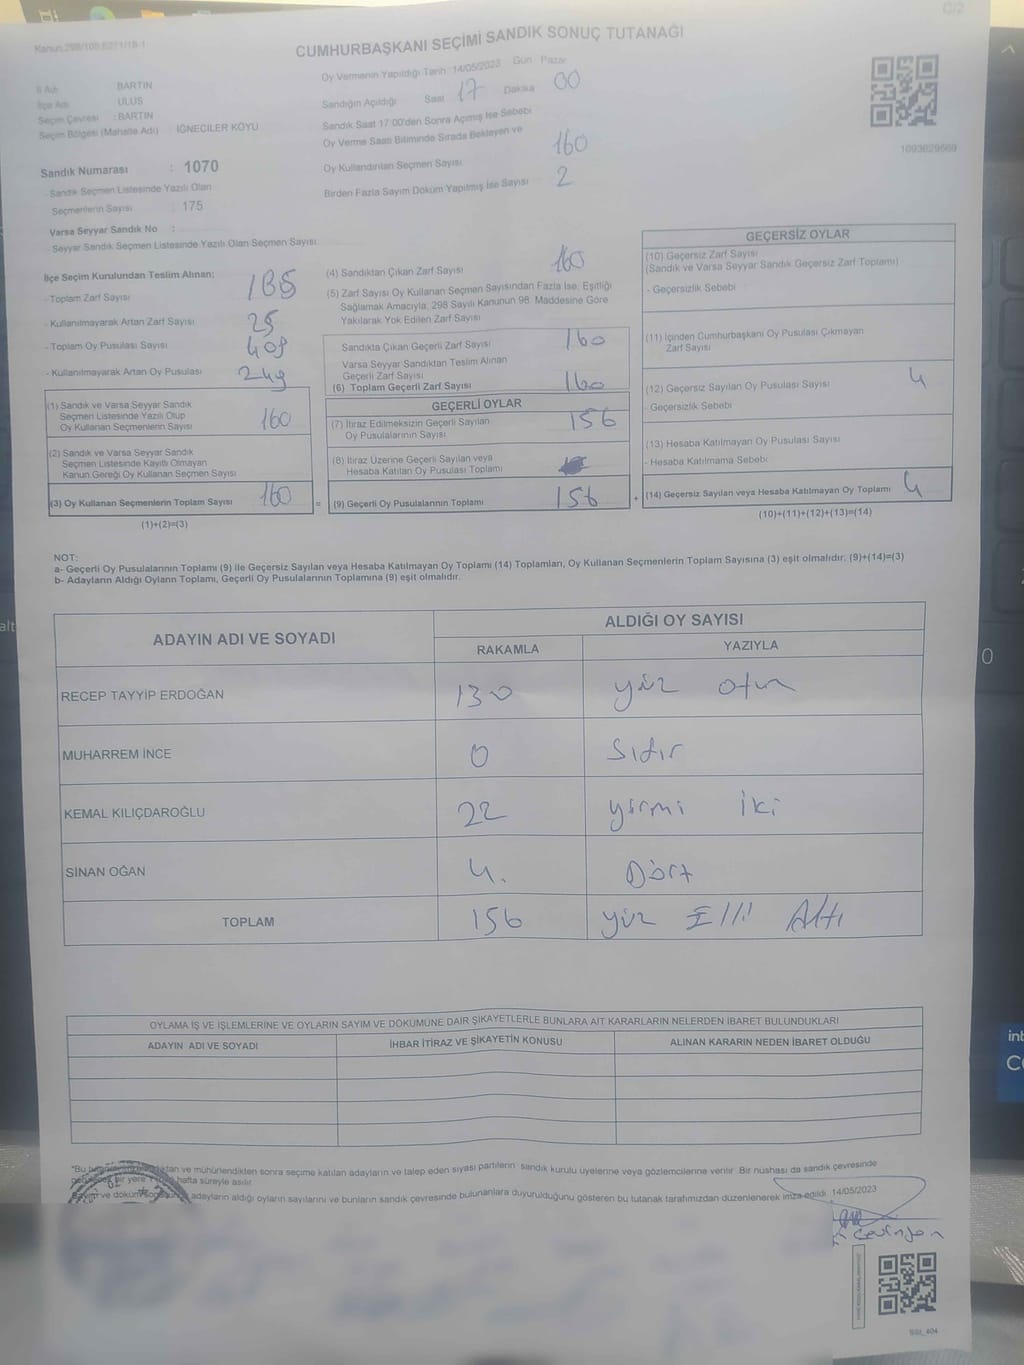 C/2
CUMHURBAŞKANI SEÇİMİ SANDIK SONUÇ TUTANAĞI
İl Adı : BARTIN
İlçe Adı : ULUS
Seçim Çevresi : BARTIN
Seçim Bölgesi (Mahalle Adı) : İĞNECİLER KÖYÜ
Sandık Numarası : 1070
- Sandık Seçmen Listesinde Yazılı Olan
Seçmenlerin Sayısı : 175
Varsa Seyyar Sandık No :
- Seyyar Sandık Seçmen Listesinde Yazılı Olan Seçmen Sayısı
Oy Vermenin Yapıldığı Tarih : 14/05/2023 Gün Pazar
Sandığın Açıldığı Saat 17 Dakika 00
Sandık Saat 17:00'den Sonra Açımış İse Sebebi
Oy Verme Saati Bitiminde Sırada Bekleyen ve
Oy Kullandırılan Seçmen Sayısı 160
Birden Fazla Sayım Döküm Yapılmış İse Sayısı 2
1093629669
İlçe Seçim Kurulundan Teslim Alınan;
- Toplam Zarf Sayısı 185
- Kullanılmayarak Artan Zarf Sayısı 25
- Toplam Oy Pusulası Sayısı 409
- Kullanılmayarak Artan Oy Pusulası 249
(1) Sandık ve Varsa Seyyar Sandık
Seçmen Listesinde Yazılı Olup
Oy Kullanan Seçmenlerin Sayısı 160
(2) Sandık ve Varsa Seyyar Sandık
Seçmen Listesinde Kayıtlı Olmayan
Kanun Gereği Oy Kullanan Seçmen Sayısı
(3) Oy Kullanan Seçmenlerin Toplam Sayısı 160 =
(1)+(2)=(3)
(4) Sandıktan Çıkan Zarf Sayısı 160
(5) Zarf Sayısı Oy Kullanan Seçmen Sayısından Fazla İse, Eşitliği
Sağlamak Amacıyla, 298 Sayılı Kanunun 98. Maddesine Göre
Yakılarak Yok Edilen Zarf Sayısı
Sandıkta Çıkan Geçerli Zarf Sayısı 160
Varsa Seyyar Sandıktan Teslim Alınan
Geçerli Zarf Sayısı
(6) Toplam Geçerli Zarf Sayısı 160
GEÇERLİ OYLAR
(7) İtiraz Edilmeksizin Geçerli Sayılan
Oy Pusulalarının Sayısı 156
(8) İtiraz Üzerine Geçerli Sayılan veya
Hesaba Katılan Oy Pusulası Toplamı
(9) Geçerli Oy Pusulalarının Toplamı 156 +
GEÇERSİZ OYLAR
(10) Geçersiz Zarf Sayısı
(Sandık ve Varsa Seyyar Sandık Geçersiz Zarf Toplamı)
- Geçersizlik Sebebi
(11) İçinden Cumhurbaşkanı Oy Pusulası Çıkmayan
Zarf Sayısı
(12) Geçersiz Sayılan Oy Pusulası Sayısı 4
- Geçersizlik Sebebi
(13) Hesaba Katılmayan Oy Pusulası Sayısı
- Hesaba Katılmama Sebebi
(14) Geçersiz Sayılan veya Hesaba Katılmayan Oy Toplamı 4
(10)+(11)+(12)+(13)=(14)
NOT:
a- Geçerli Oy Pusulalarının Toplamı (9) ile Geçersiz Sayılan veya Hesaba Katılmayan Oy Toplamı (14) Toplamları, Oy Kullanan Seçmenlerin Toplam Sayısına (3) eşit olmalıdır. (9)+(14)=(3)
b- Adayların Aldığı Oyların Toplamı, Geçerli Oy Pusulalarının Toplamına (9) eşit olmalıdır.
ADAYIN ADI VE SOYADI ALDIĞI OY SAYISI
RAKAMLA YAZIYLA
RECEP TAYYİP ERDOĞAN 130 yüz otuz
MUHARREM İNCE 0 Sıfır
KEMAL KILIÇDAROĞLU 22 yirmi iki
SİNAN OĞAN 4. Dört
TOPLAM 156 yüz Elli Altı
OYLAMA İŞ VE İŞLEMLERİNE VE OYLARIN SAYIM VE DÖKÜMÜNE DAİR ŞİKAYETLERLE BUNLARA AİT KARARLARIN NELERDEN İBARET BULUNDUKLARI
ADAYIN ADI VE SOYADI İHBAR İTİRAZ VE ŞİKAYETİN KONUSU ALINAN KARARIN NEDEN İBARET OLDUĞU
"Bu ve mühürlendikten sonra seçime katılan adayların ve talep eden siyasi partilerin sandık kurulu üyelerine veya gözlemcilerine verilir. Bir nüshası da sandık çevresinde
bir yere hafta süreyle asılır.
ve döküm adayların aldığı oyların sayılarını ve bunların sandık çevresinde bulunanlara duyurulduğunu gösteren bu tutanak tarafımızdan düzenlenerek imza edildi. 14/05/2023